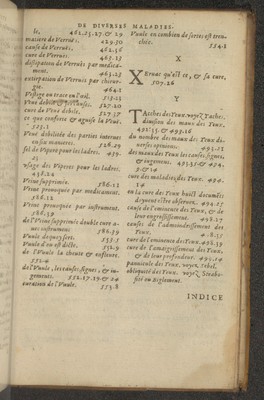 DE DIVERSES MALADIES.
le, 461.25.27.& 29
matiere de Verrues. 429.30
cause de Verrues. 462.56
cure de Verrues. 463.
dissipation de Verrues par medicament. 463.25
extirpation de Verrues par chirurgie. 464.1
Visage ou trace en l'œil.
Vne debilité & ses causes. 527.20
cure de Vne debile. 527.37
ce que conforte & aguise la Vuë.
Vne debilitée des parties internes
ou sin matieres. 526.29
sel de Vipere pour les ladres.
25
vsage des Viperes pour les ladres.
438.24
Vrine supprimée. 586.12
Vrine prouoquée par medicament.
586.22
Vrine prouoquée par instrument.
586.39
de l'Vrine supprimée double cure auec instrument 586.39
Vuule de quoy sert. 553.5
Vuule d'où est dicte. 552.9
de l'Vuule la cheute & enfleure.
552.4
de l'Vuule, les causes, signes, & iugemens. 552.17.19.& 24
curation de l'Vuule. 553.8
Vuule en combien de sortes est trenchée. 554.1
X
Xeruac qu'est ce, & sa cure.
507.16
Y
Taches des Yeux. voyez Taches.
diuision des maux des Yeux.
492.35. & 493.16
du nombre des maux des Yeux diuerses opinions. 493.15
des maux des Yeux les causes, signes,
& iugemens. 493.35. & 494.
9. & 14
cure des maladies des Yeux. 494.
14
en la cure des Yeux huict documẽs
doyuent estre obseruez. 494.17
cause de l'eminence des Yeux, & de
leur engrossissement. 498.27
causes de l'admoindrissement des
Yeux. 498.35
cure de l'eminence des Yeux. 498.39
cure de l'amaigrissement des Yeux,
& de leur profondeur. 499.14
pannicule des Yeux. voyez Sebel.
obliquité des Yeux. voyez Strabosité ou Biglement.
INDICE